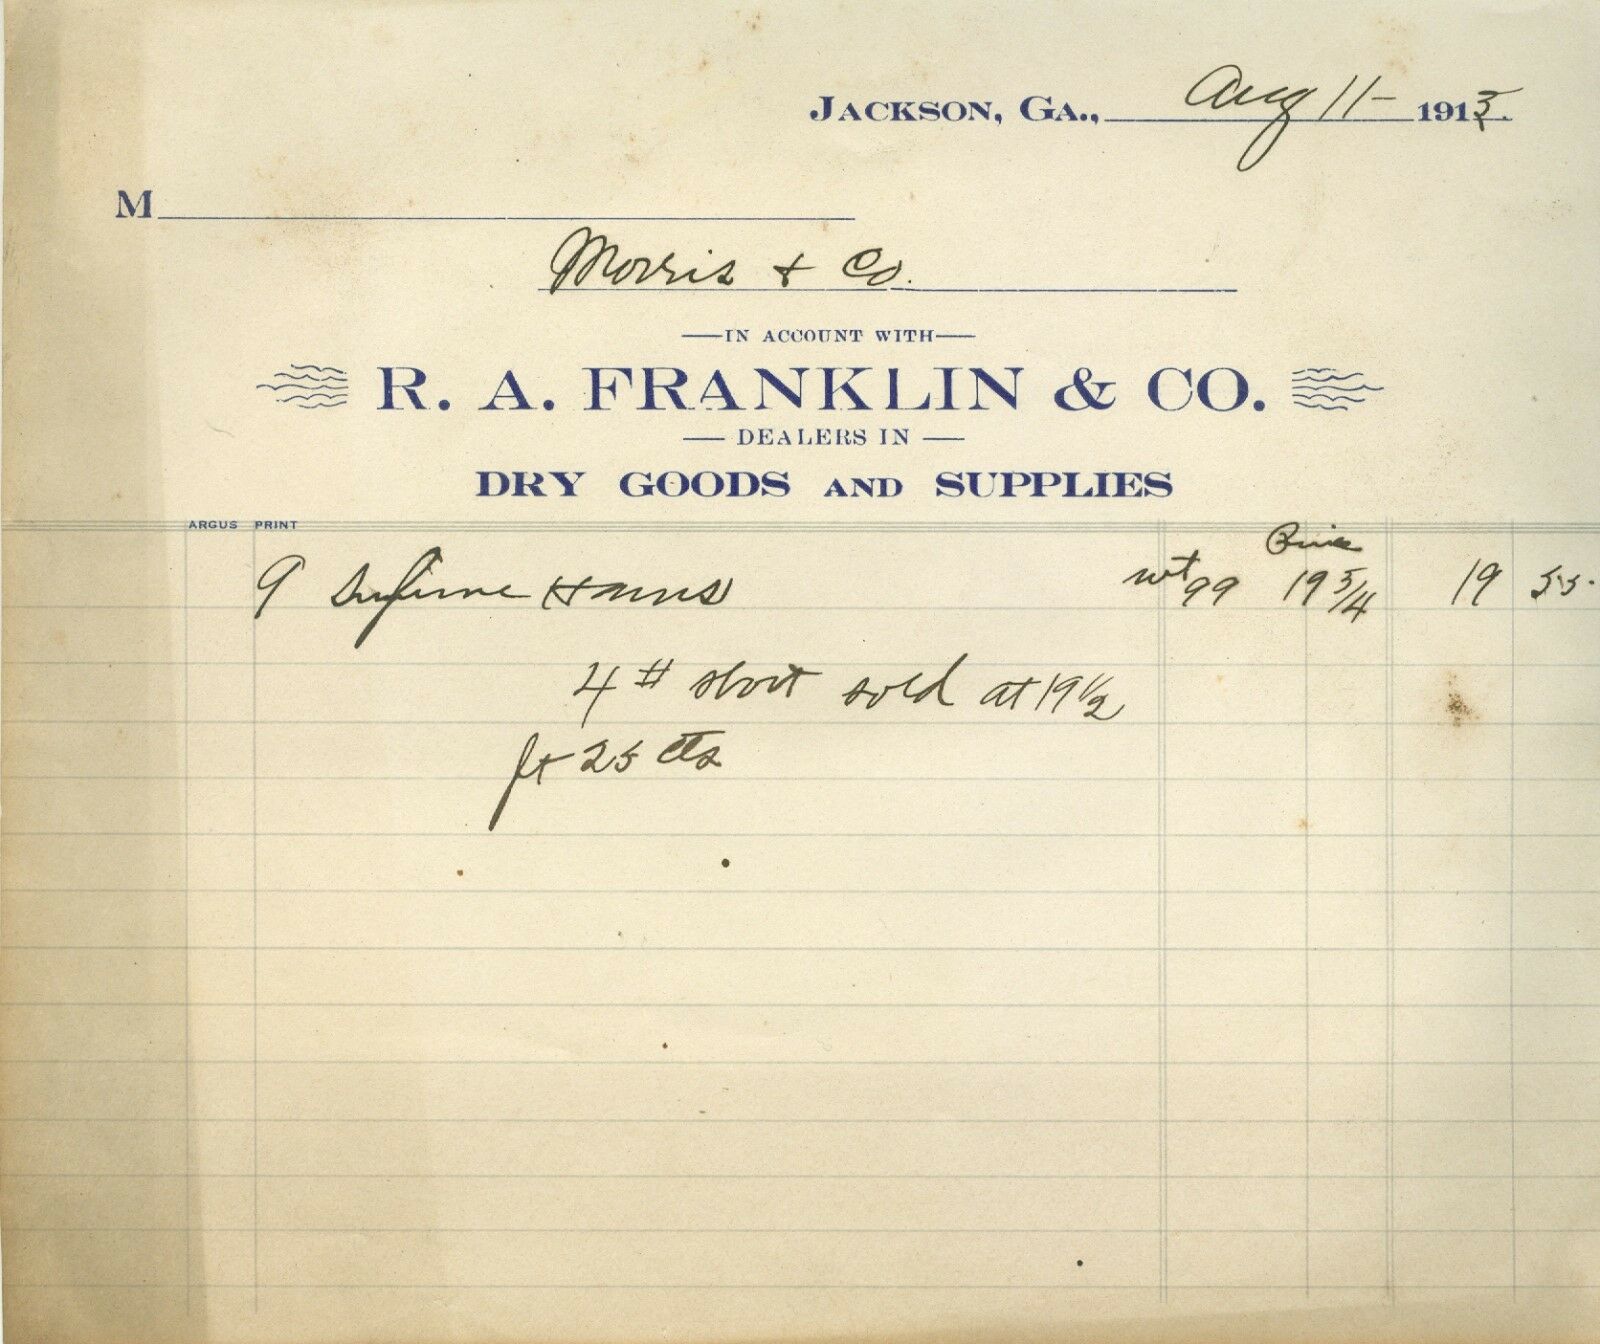 JACKSON, GA., Aug 11- 1913.
M
Morris & Co.
IN ACCOUNT WITH
R. A. FRANKLIN & CO.
DEALERS IN
DRY GOODS AND SUPPLIES
ARGUS PRINT
Price
9 Supreme Hams wt 99 19 3/4 19 55.
4 # short sold at 19 1/2
frt 25 cts